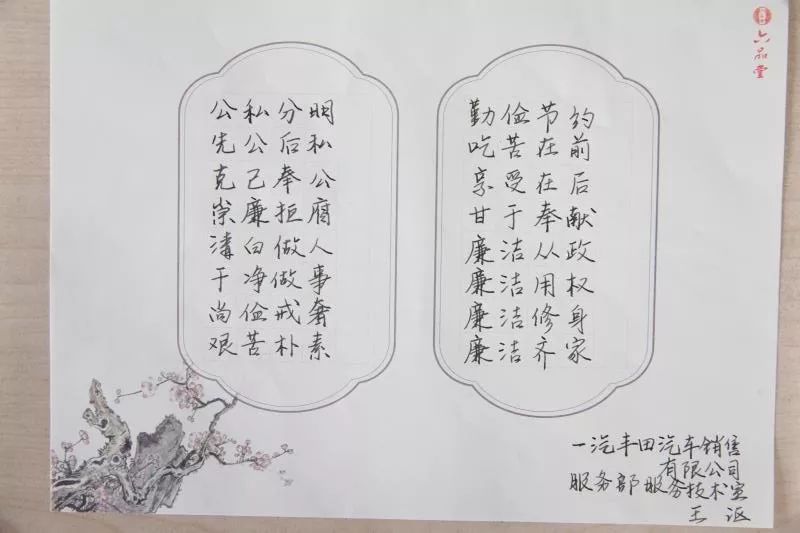 公私分明
先公后私
克己奉公
崇廉拒腐
清白做人
干净做事
尚俭戒奢
艰苦朴素
勤俭节约
吃苦在前
享受在后
甘于奉献
廉洁从政
廉洁用权
廉洁修身
廉洁齐家
六品堂
一汽丰田汽车销售
有限公司
服务部服务技术室
王